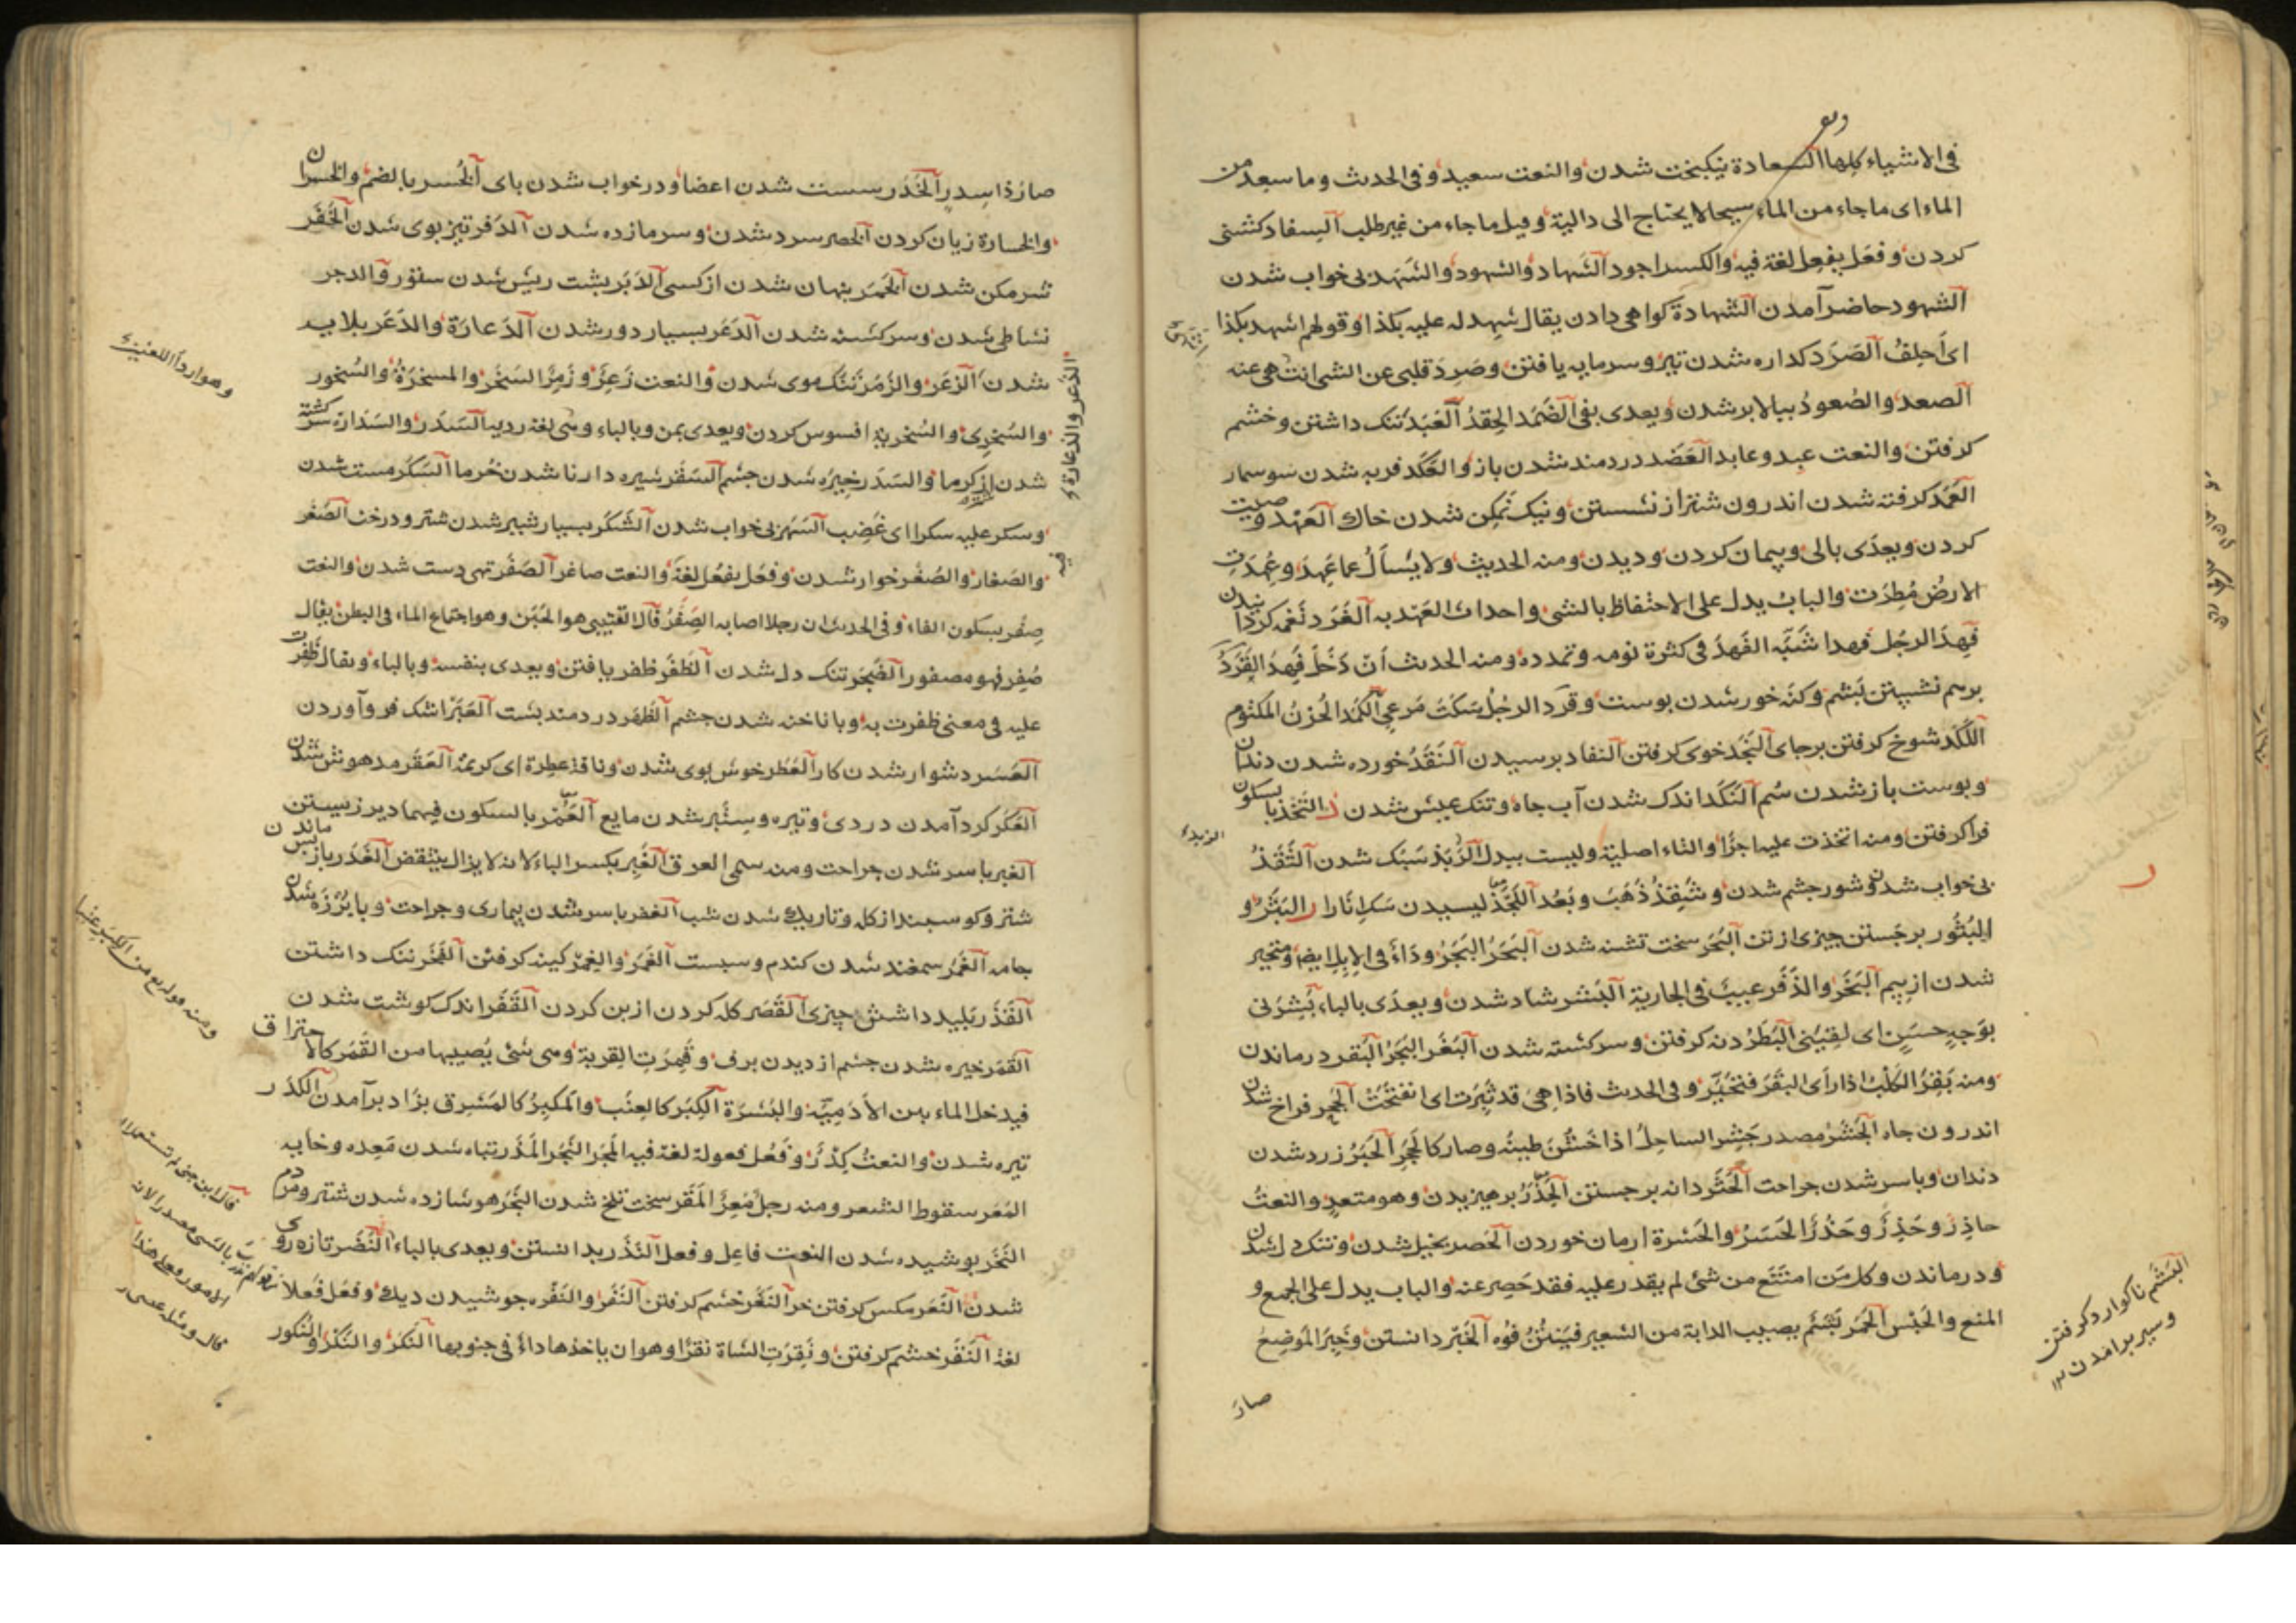 فی الاشیاء کلها السعادة نیکبخت شدن والنعت سعید وفی الحدیث وما سعد من
الماء ای ما جاء من الماء سیحا لا یحتاج الی دالیة وقیل ما جاء من غیر طلب السفاد کشنی
کردن وفعل یفعل لغة فیه والکسر اجود الشهاد والشهود والشهد بی خواب شدن
الشهود حاضر آمدن الشهادة کواهی دادن یقال شهد له علیه بکذا وقولهم اشهد بکذا
ای أحلف الصرد کداره شدن تیر وسرما یه یافتن وصرد قلبی عن الشی انتهی عنه
الصعد والصعود ببالا بر شدن ویعدی بفی الضمد الحقد العبد تنک داشتن وخشم
کرفتن والنعت عبد وعابد العضد دردمند شدن بازو العکد فربه شدن سوسمار
العمد کرفته شدن اندرون شتر از نشستن ونیک نمکن شدن خاک العهد وصیت
کردن ویعدی بالی وپیمان کردن ودیدن ومنه الحدیث ولا یسأل عما عهد وعهدت
الارض مطرت والباب یدل علی الاحتفاظ بالشی واحداث العهد به الغرد نغمه کردانیدن
فهد الرجل فهدا شبه الفهد فی کثرة نومه وتمدده ومنه الحدیث ان دخل فهد القرد
برهم نشستن پشم وکنه خور شدن پوست وقرد الرجل سکت من عی الکمد الحزن المکتوم
اللکد شوخ کرفتن بر جای النجد خوی کرفتن النفاد برسیدن النقد خورده شدن دندان
وپوست باز شدن سم النکد اندک شدن آب چاه وتنک عیش شدن ذ التخذ بالسکون
فرا کرفتن ومنه اتخذت علیه اجرا والتاء اصلیة ولیست ببدل الربذ سبک شدن الشقذ
بی خواب شدن وشور چشم شدن وشقذ ذهب وبعد اللجذ لیسیدن سک اناء را ر البثر و
البثور برجستن چیزی از تن البحر سخت تشنه شدن البحر البجر وداء فی الابل ایضا ومتحیر
شدن از بیم البخر والذفر عیب فی الجاریة البشر شاد شدن ویعدی بالباء بشرنی
بوجه حسن ای لقینی البطر دنه کرفتن وسرکشته شدن البغر البجر البقر درماندن
ومنه بقر الکلب اذا رأی البقر فتحیر وفی الحدیث فاذا هی قد ثجرت ای انفتحت الجحر فراخ شدن
اندرون چاه الجشر مصدر جشر الساحل اذا خشن طینه وصار کالحجر الحبر زرد شدن
دندان وباسر شدن جراحت الحثر دانه برجستن الحذر پرهیزیدن وهو متعد والنعت
حاذر وحذر وحذر الحسر والحسرة ارمان خوردن الحصر بخیل شدن وتنک دل شدن
ودرماندن وکل من امتنع من شی لم یقدر علیه فقد حصر عنه والباب یدل علی الجمع و
المنع والحبس الحمر تبشم یصیب الدابة من الشعیر فینتن فوه الخبر دانستن وخبر الموضع
صار
البشم ناکوارد کرفتن
وسیر برامدن ۱۲
صار ذا سدر الخدر سست شدن اعضا ودر خواب شدن پای الخسر بالضم والخسران
والخسارة زیان کردن الخصر سرد شدن وسرما زده شدن الدفر تیز بوی شدن الخفر
شرمکن شدن الخمر پنهان شدن از کسی الدبر پشت ریش شدن ستور والدجر
نشاطی شدن وسرکشته شدن الدغر بسیار دور شدن الدعارة والدعر بلایه
شدن الزعر والزمر تنک موی شدن والنعت زعر وزمر السخر والمسخرة والسخور
والسخری والسخریة افسوس کردن ویعدی بمن وبالباء وهی لغة ردیة السدر والسدارة سرکشته
شدن از کرما والسدر خیره شدن چشم السفر شیره دار نا شدن خرما السکر مست شدن
وسکر علیه سکرا ای غضب السهر بی خواب شدن الشکر بسیار شیر شدن شتر ودرخت الصغر
والصغار والصغر خوار شدن وفعل یفعل لغة والنعت صاغر الصفر تهی دست شدن والنعت
صفر بسکون الفاء وفی الحدیث ان رجلا اصابه الصفر قال القتیبی هو الحبن وهو اجتماع الماء فی البطن یقال
صفر فهو مصفور الضجر تنک دل شدن الظفر ظفر یافتن ویعدی بنفسه وبالباء ویقال ظفرت
علیه فی معنی ظفرت به وبا ناخنه شدن چشم الظهر دردمند پشت العبر اشک فرو آوردن
العسر دشوار شدن کار العطر خوش بوی شدن وناقة عطرة ای کریمة العقر مدهوش شدن
العکر کرد آمدن دردی وتیره وسطبر شدن مایع العمر بالسکون فیهما دیر زیستن
الغبر باسر شدن جراحت ومنه سمی العرق الغبر بکسر الباء لانه لا یزال ینتقض الغدر باز پس ماندن
شتر وکوسبند از کله وتاریک شدن شب الغفر باسر شدن بیماری وجراحت وبا پرزه شدن
جامه الغمر سمغند شدن کندم وسبست الغمر والغمر کینه کرفتن الفخر ننک داشتن
القذر پلید داشتن چیزی القصر کله کردن از بن کردن القفر اندک کوشت شدن
القمر خیره شدن چشم از دیدن برف وقمرت القربة وهی شی یصیبها من القمر کالاحتراق
فیدخل الماء بین الادمة والبشرة الکبر کالعنب والمکبر کالمشرق بزاد برآمدن الکدر
تیره شدن والنعت کدر وفعل فعولة لغة فیه المجر النجر المذر تباه شدن معده وخایه
المعر سقوط الشعر ومنه رجل معر المقر سخت تلخ شدن النجر هوشازده شدن شتر ومردم
النخر پوشیده شدن النعت فاعل وفعل النذر بدانستن ویعدی بالباء النضر تازه روی
شدن النعر مکس کرفتن خر النغر خشم کرفتن النفر والنفره جوشیدن دیک وفعل فعلا
لغة النقر خشم کرفتن ونقرت الشاة نقرا وهو ان یاخذها داء فی جنوبها النکر والنکر والنکور
الذعر والذعارة
فیه
وهو اردأ اللغتین